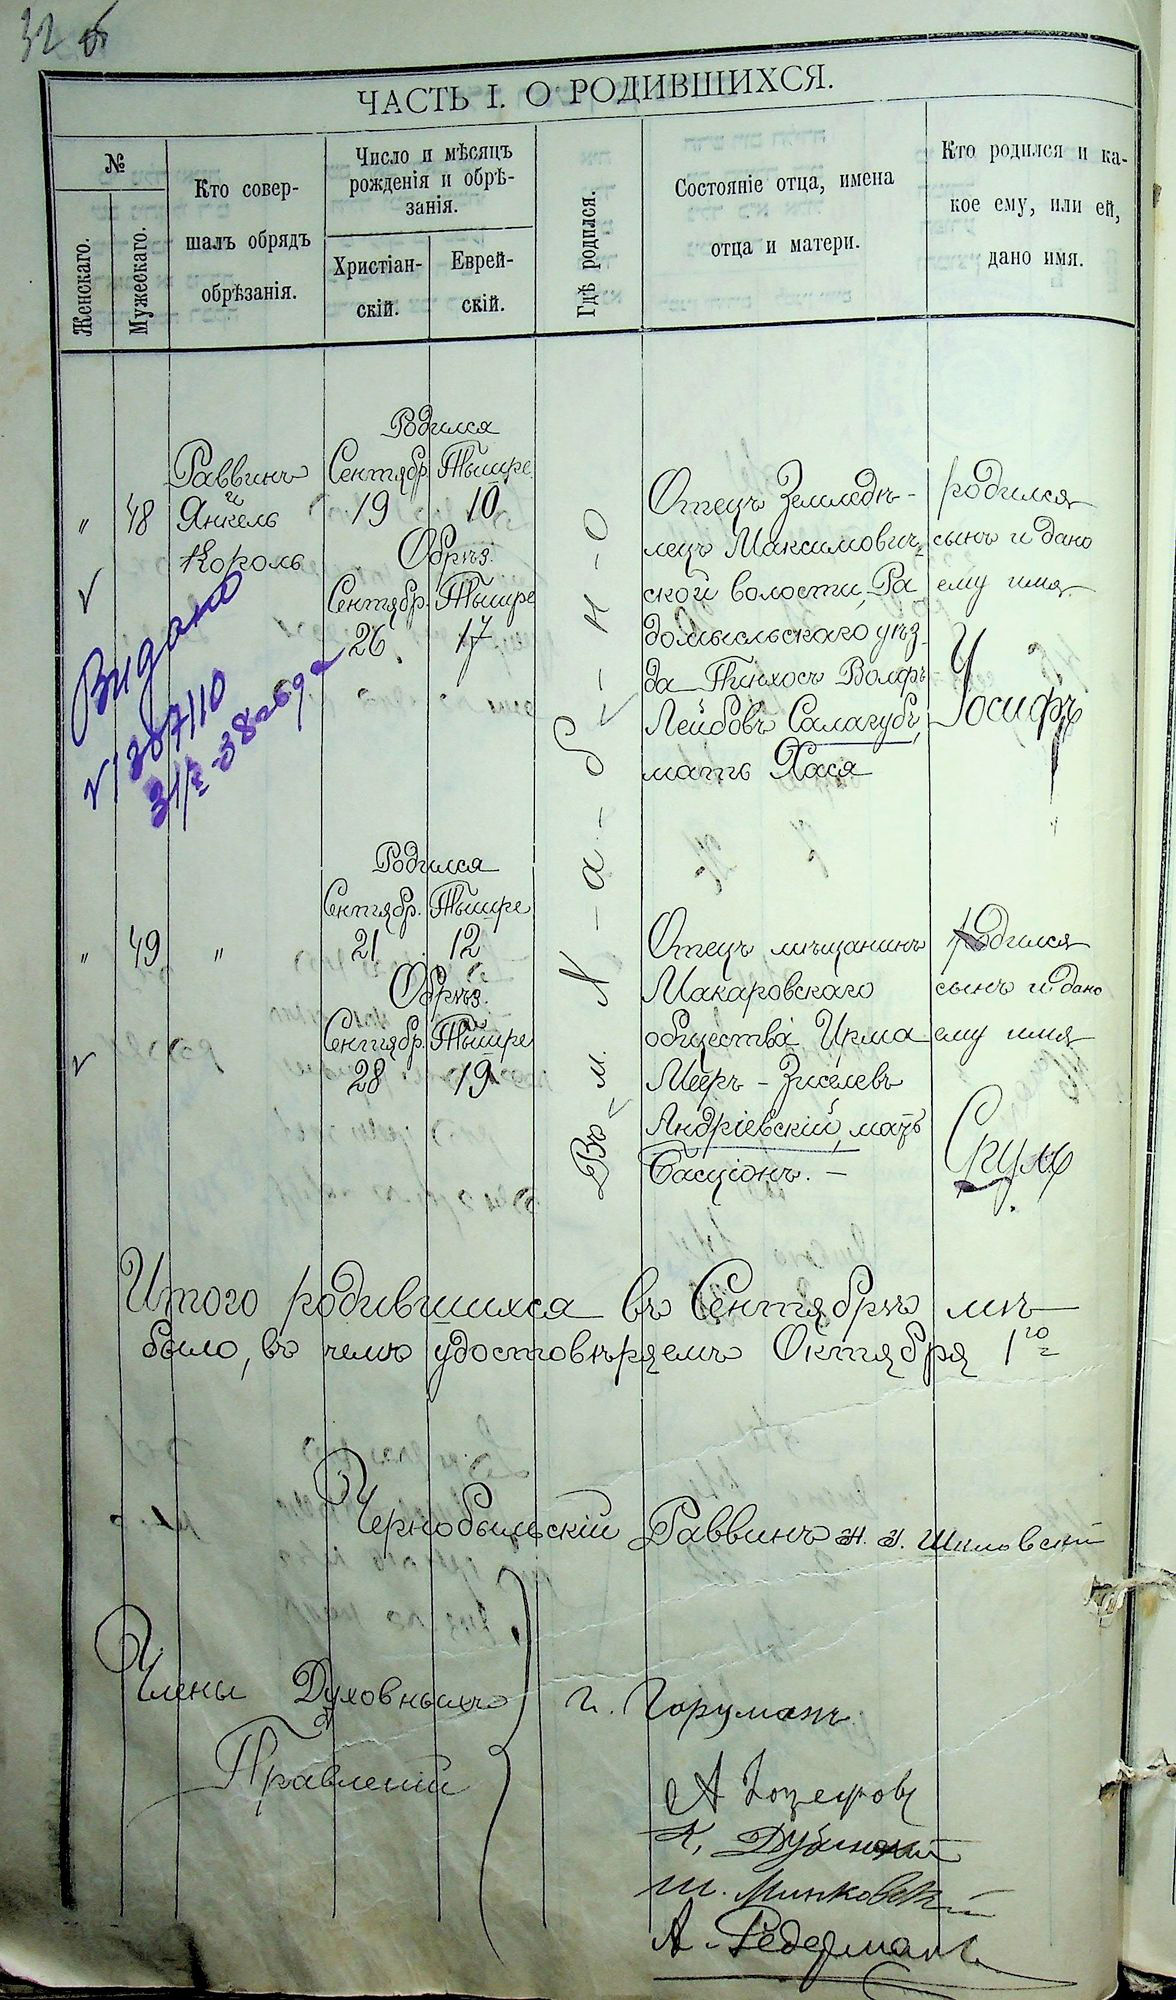 32
ЧАСТЬ I. О РОДИВШИХСЯ.
№
Женскаго.
Мужескаго.
Кто совер-
шалъ обрядъ
обрѣзанія.
Число и мѣсяцъ
рожденія и обрѣ-
занія.
Христіан-
скій.
Еврей-
скій.
Гдѣ родился.
Состояніе отца, имена
отца и матери.
Кто родился и ка-
кое ему, или ей,
дано имя.
"
48
Раввинъ
Янкель
Король
Родился
Сентябр. Тышре
19 10
Обрѣз.
Сентябр. Тышре
26 17
Въ м.
Отецъ Земледѣ-
лецъ Максимович-
ской волости, Ра
домысльскаго уѣз-
да Пинхосъ Волфъ
Лейбовъ Салагубъ,
мать Хася
родился
сынъ и дано
ему имя
Іосифъ
Видано
31/X-38
"
49
"
Родился
Сентябр. Тышре
21 12
Обрѣз.
Сентябр. Тышре
28 19
Отецъ мѣщанинъ
Макаровскаго
общества Ирма
Меэръ - Зиселевъ
Андріевскій, мать
Басціонъ. —
родился
сынъ и дано
ему имя
Сруль
Итого родившихся въ Сентябрѣ м-цѣ
было, въ чемъ удостовѣряемъ Октября 1го
Чернобыльскій Раввинъ Шкловскій
Члены Духовныхъ
Правленій
А.
К. Дубинскій
Ш. Минковскій
А. Федерманъ